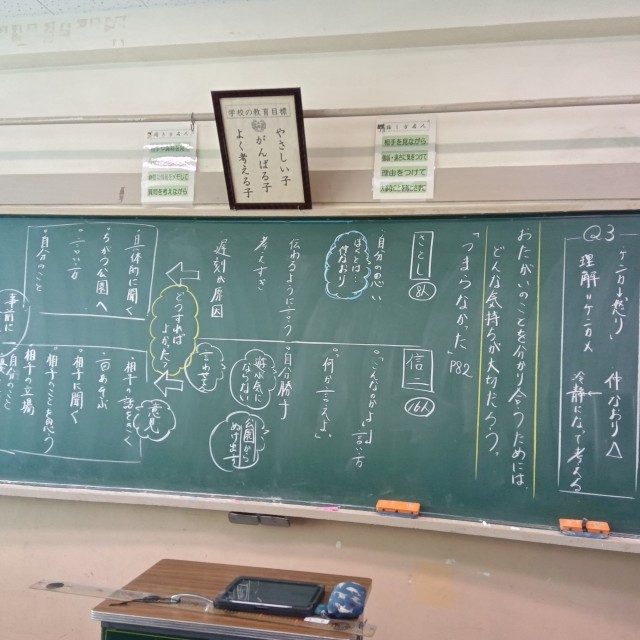 学校の教育目標
やさしい子
がんばる子
よく考える子
相手を見ながら
理由をつけて
質問を考えながら
Q3
・ケンカ、怒り
仲なおり△
理解＝ケンカ×
冷静になって考える
おたがいのことを分かり合うためには、
どんな気持ちが大切だろう。
「つまらなかった」P82
さとし
8人
信二
16人
・自分の思い
ぼくとは…
仲なおり
・伝わるように言う
考えすぎ
遅刻が原因
・「こんな公園」言い方
・「何か言えよ。」
・自分勝手
遊ぶ気に
ならない
公園から
ぬけ出す
言わせて
どうすれば
よかった?
・具体的に聞く
ちがう公園へ
・言い方
・自分のこと
事前に
意見
・相手の話をきく
・相手に聞く
・相手のことを思う
・相手の立場
自分のこと